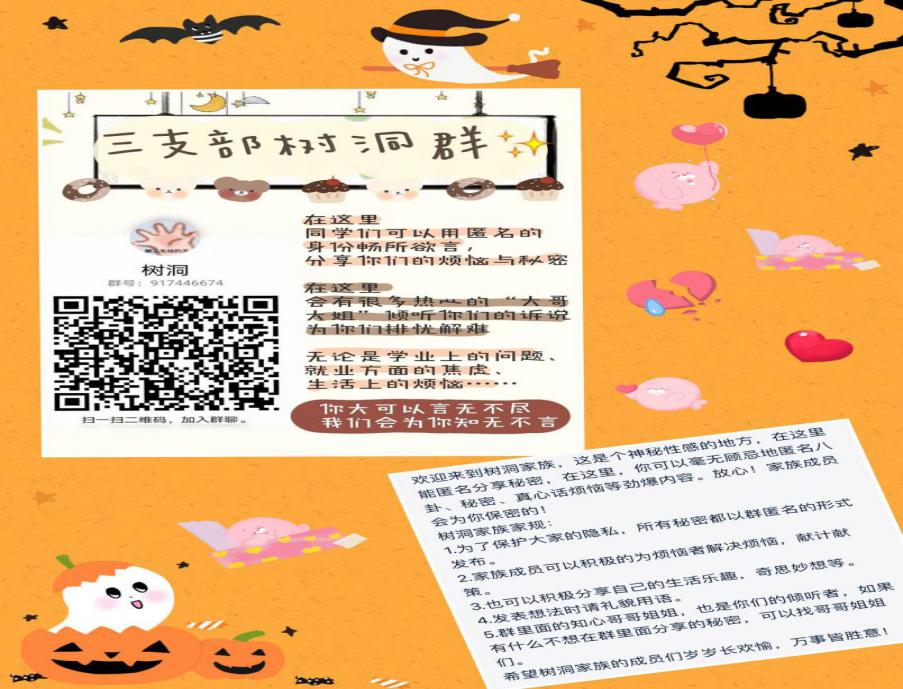 三支部树洞群
树洞
群号：917446674
扫一扫二维码，加入群聊。
在这里
同学们可以用匿名的
身份畅所欲言，
分享你们的烦恼与秘密
在这里
会有很多热心的“大哥
大姐”倾听你们的诉说
为你们排忧解难
无论是学业上的问题、
就业方面的焦虑、
生活上的烦恼……
你大可以言无不尽
我们会为你知无不言
欢迎来到树洞家族，这是个神秘性感的地方，在这里
能匿名分享秘密，在这里，你可以毫无顾忌地匿名八
卦、秘密、真心话烦恼等劲爆内容。放心！家族成员
会为你保密的！
树洞家族家规：
1.为了保护大家的隐私，所有秘密都以群匿名的形式
发布。
2.家族成员可以积极的为烦恼者解决烦恼，献计献
策。
3.也可以积极分享自己的生活乐趣，奇思妙想等。
4.发表想法时请礼貌用语。
5.群里面的知心哥哥姐姐，也是你们的倾听者，如果
有什么不想在群里面分享的秘密，可以找哥哥姐姐
们。
希望树洞家族的成员们岁岁长欢愉，万事皆胜意！